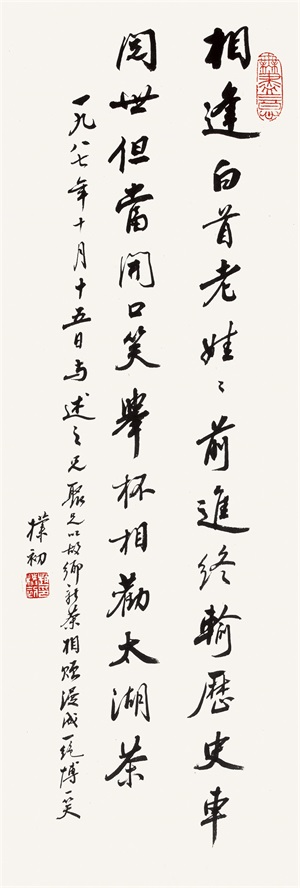 無盡意
相逢白首老娃〻前進終輸歷史車
閱世但當開口笑舉杯相勸太湖茶
一九八七年十月十五日与述之兄聚兄以故鄉新茶相漫成一絕博一笑
樸初